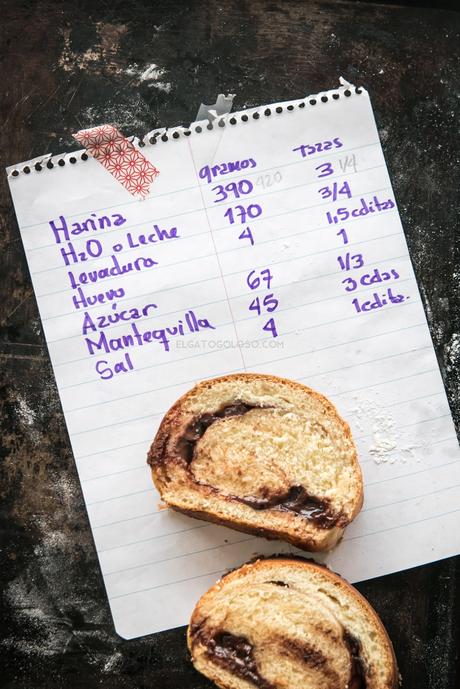 gramos tazas
Harina 390 420 3 1/4
H2O o Leche 170 3/4
Levadura 4 1,5 cditas
Huevo 1
Azúcar 67 1/3
Mantequilla 45 3 cdas
Sal 4 1 cdita.
ELGATOGOLOSO.COM